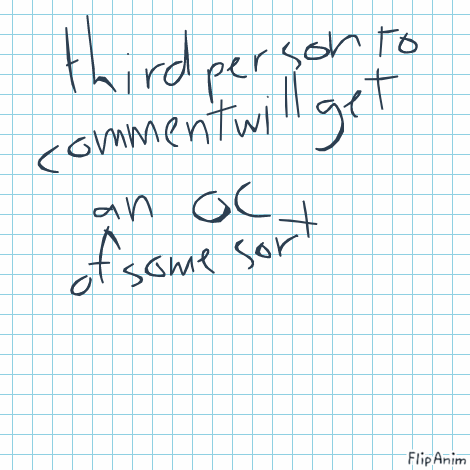 third person to
comment will get
an OC
of some sort
FlipAnim